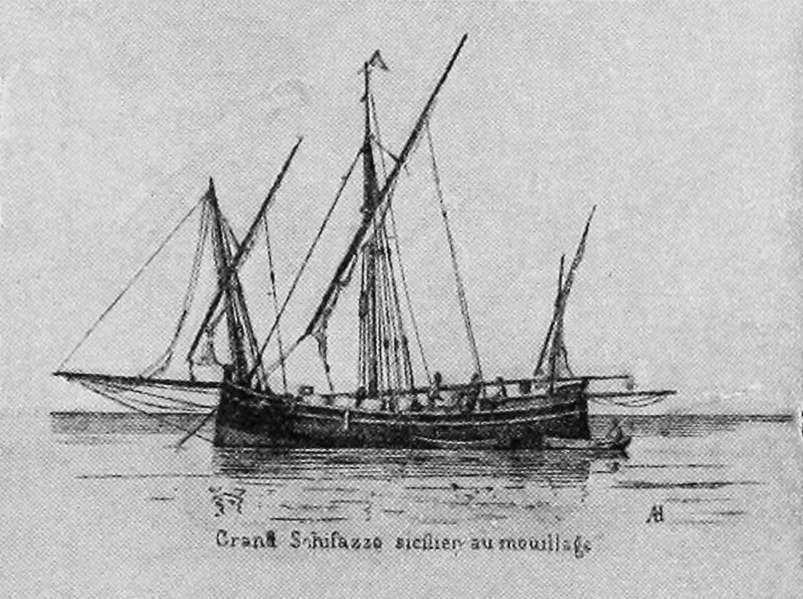 Grand Schifazzo sicilien au mouillage
AH